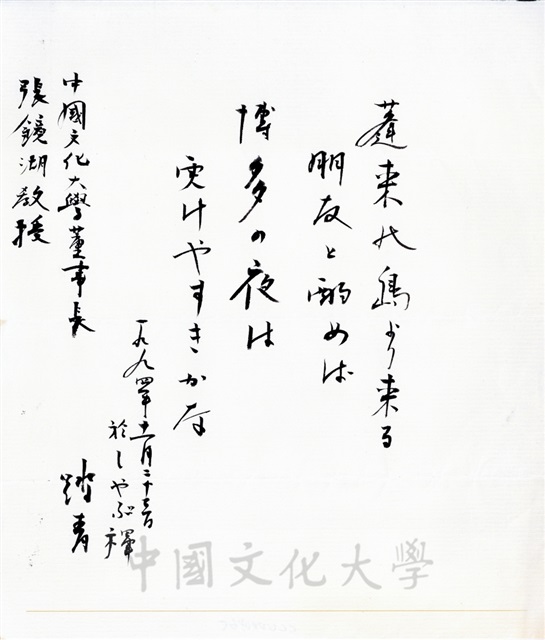 蓬莱の島より来る
朋友と酌めば
博多の夜は
更けやすきかな
一九九四年十一月二十三日
於しやぶ禅
踏青
中國文化大學董事長
張鏡湖教授
中國文化大學